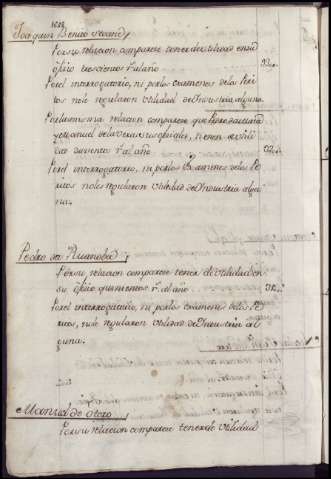 Joaquin Benito
Por su relacion comparece tener de utilidad en su
oficio trescientos rs al año
Por el interrogatorio, ni por los examenes de los Peri
tos no le regularon Utilidad de Industria alguna.
Por la misma relacion comparece que
Manuel de la sus hijos, tienen de utili
dad doscientos rs al año
Por el interrogatorio, ni por los examenes de los Pe
ritos no les regularon Utilidad de Industria algu
na.
Pedro de Ruanoba
Por su relacion comparece tener de utilidad en
su oficio quinientos rs al año
Por el interrogatorio, ni por los examenes de los Pe
ritos, no le regularon utilidad de Industria al
guna.
Manuel de otero
Por su relacion comparece tener de Utilidad